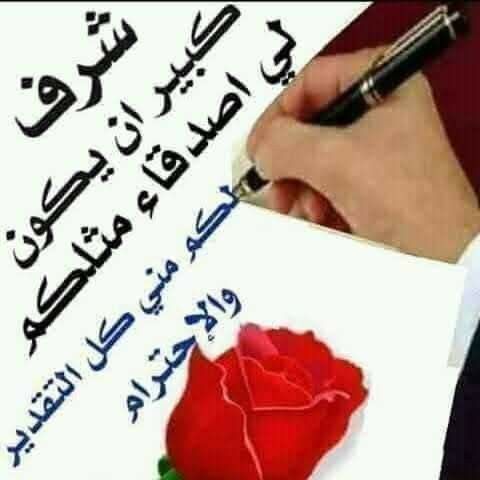 شرف
كبير ان يكون
لي اصدقاء مثلكم
لكم مني كل التقدير
والإحترام